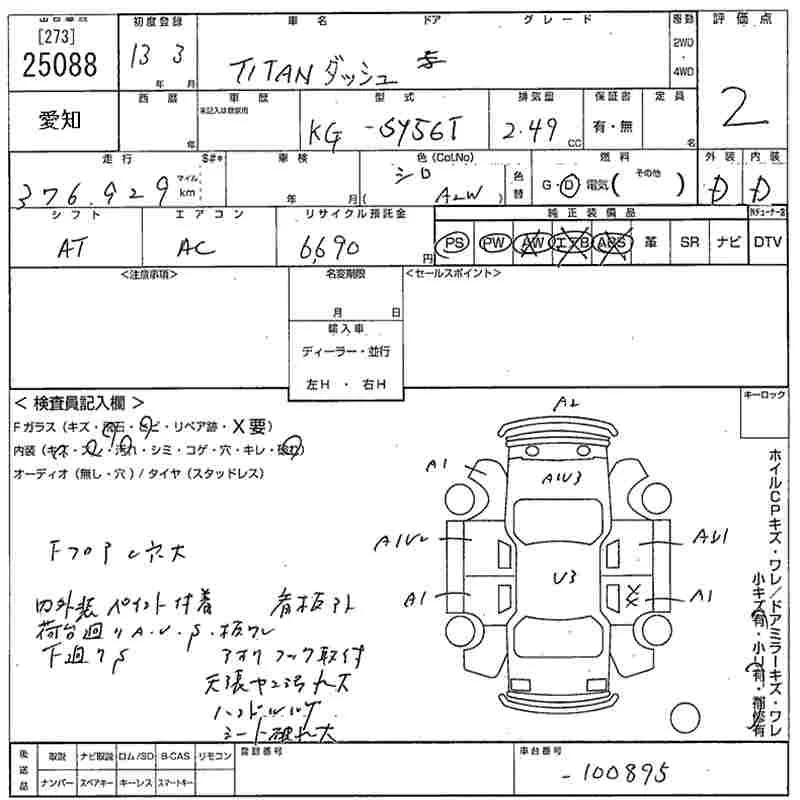 [273]
25088
愛知
初度登録
13 3
年 月
車名 ドア グレード
TITAN ダッシュ
駆動
2WD
・
4WD
評価点
2
西暦
年
車歴
未記入は自家用
型式
KG -SY56T
排気量
2.49 CC
保証書
有・無
定員
名
走行 S#*
376.929 マイル km
車検
年 月
色 (Col.No)
シロ
( A2W )
色替
燃料
G・D・電気 ( その他 )
外装
D
内装
D
シフト
AT
エアコン
AC
リサイクル預託金
6,690 円
純正装備品
PS PW AW エアB ABS 革 SR ナビ DTV
<注意事項>
名変期限
月 日
輸入車
ディーラー・並行
左H ・ 右H
<セールスポイント>
< 検査員記入欄 >
Fガラス (キズ・飛石・ヒビ・リペア跡・X要)
内装 (キズ・スレ・汚れ・シミ・コゲ・穴・キレ・破れ)
オーディオ (無し・穴) / タイヤ (スタッドレス)
キーロック
A2
A1
A1U3
A1U2
AU1
U3
A1
XX
A1
Fフロア 穴大
内外装 ペイント付着 看板
荷台廻り A.U.S.板ワレ
下廻りS アオリ フック取付
天張ヤニ汚れ大
ハンドル
シート破れ大
ホイルCPキズ・ワレ/ドアミラーキズ・ワレ
小キズ有・小U有・補修有
後送品
取説 ナビ取説 ロム/SD B-CAS リモコン
ナンバー スペアキー キーレス スマートキー
登録番号
車台番号
-100895